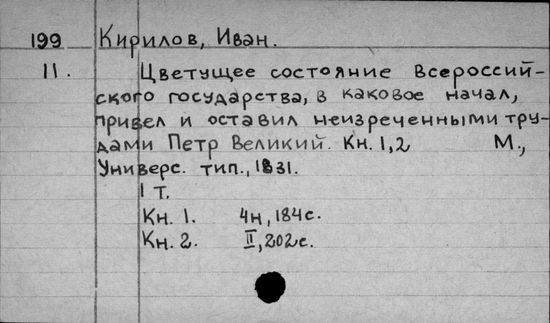 199 Кирилов, Иван.
11. Цветущее состояние Всероссий-
ского государства, в каковое начал,
привел и оставил неизреченными тру-
дами Петр Великий. Кн. 1,2 М.,
Универс. тип., 1831.
1 т.
Кн. 1. 4н, 184с.
Кн. 2. II, 202с.